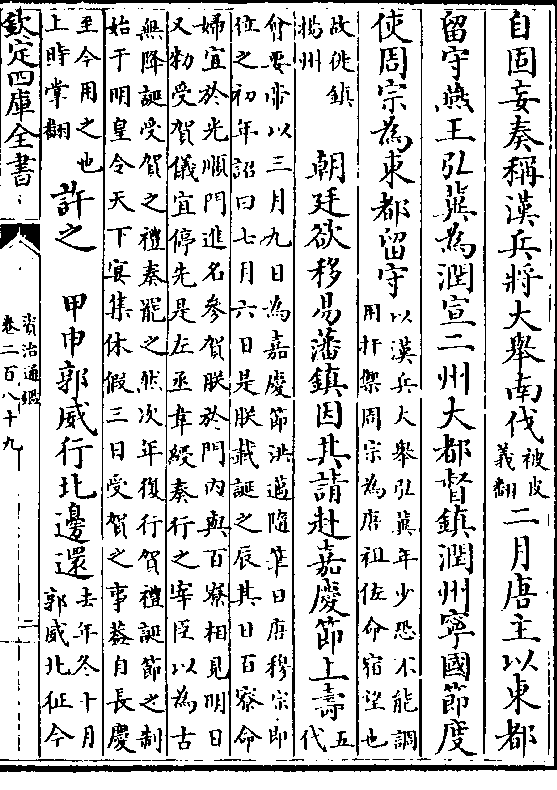 自固妄奏稱漢兵將大舉南伐被皮義翻二月唐主以東都
留守燕王弘冀為潤宣二州大都督鎮潤州寧國節度
使周宗為東都留守以漢兵大舉弘冀年少恐不能調用扞禦周宗為唐祖佐命宿望也
故徙鎮揚州朝廷欲移易藩鎮因其請赴嘉慶節上壽五代
會要帝以三月九日為嘉慶節洪邁隨筆曰唐穆宗即
位之初年詔曰七月六日是朕載誕之辰其日百寮命
婦宜於光順門進名參賀朕於門內與百寮相見明日
又勑受賀儀宜停先是左丞韋綬奏行之宰臣以為古
無降誕受賀之禮奏罷之然次年復行賀禮誕節之制
始于明皇令天下宴集休假三日受賀之事蓋自長慶
至今用之也上時掌翻許之甲申郭威行北邊還去年冬十月郭威北征今
欽定四庫全書
資治通鑑
卷二百八十九
二